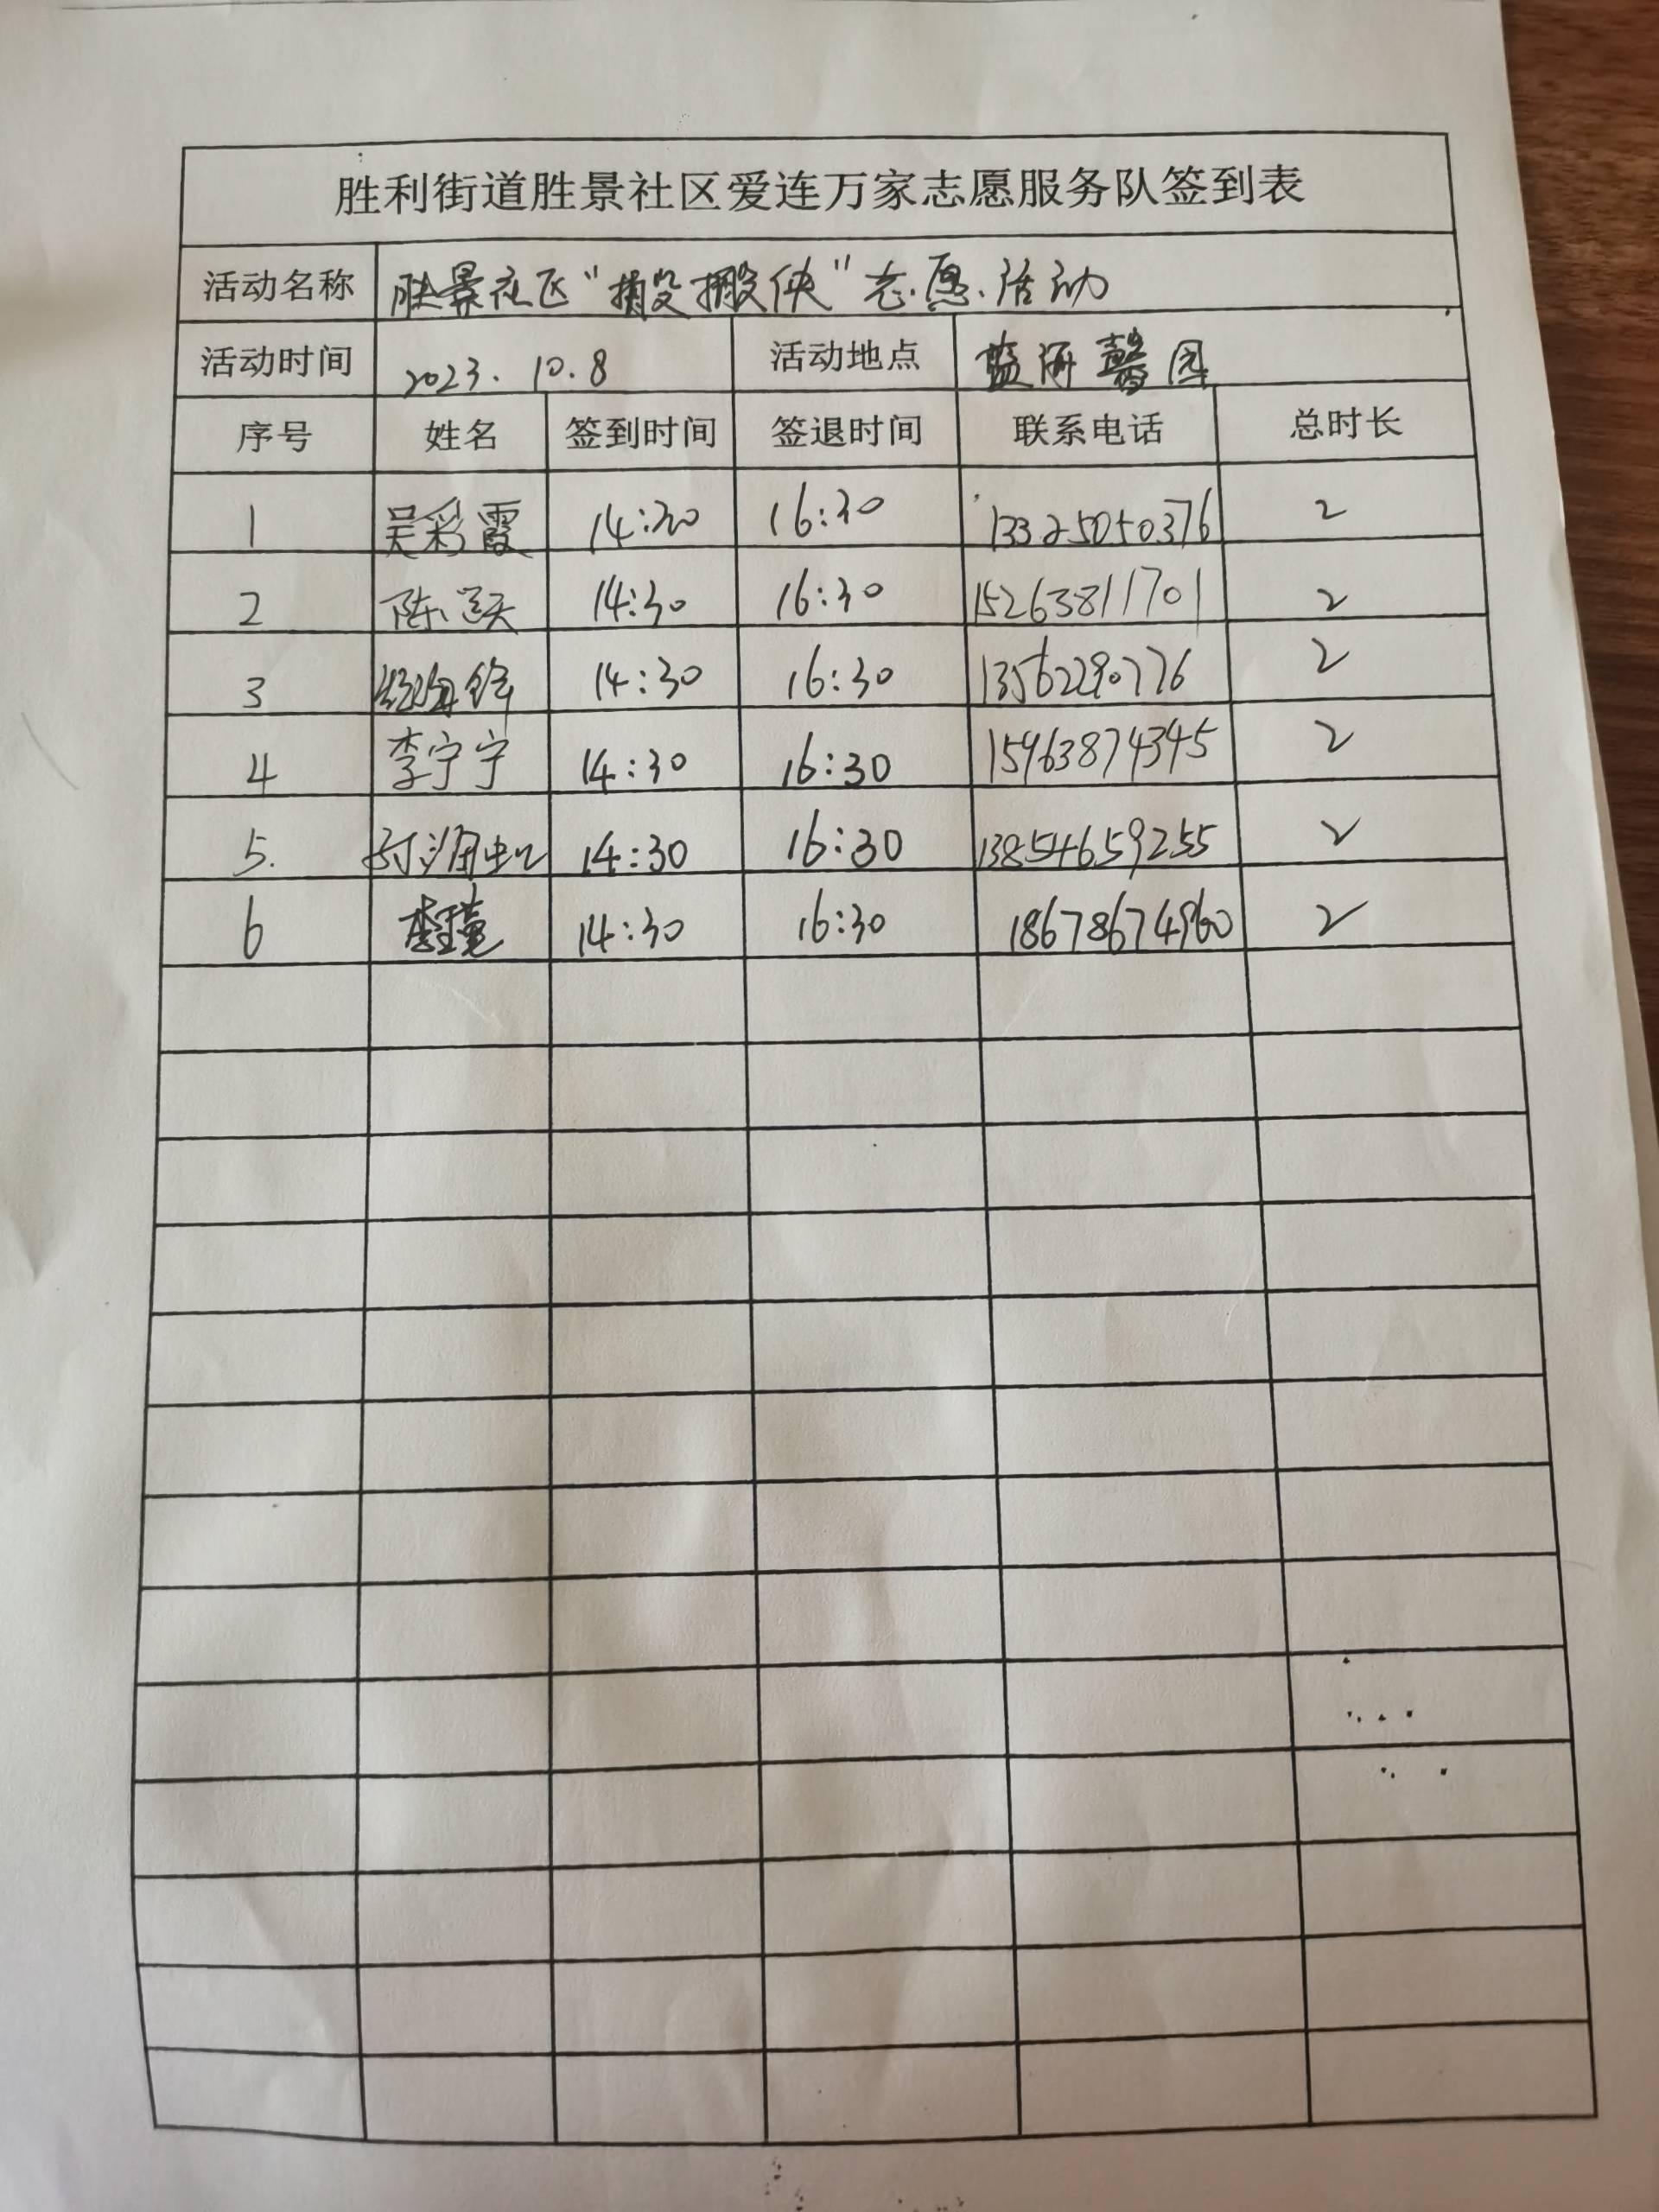 胜利街道胜景社区爱连万家志愿服务队签到表
活动名称 胜景社区“搬搬侠”志愿活动
活动时间 2023.10.8 活动地点 蓝海馨园
序号 姓名 签到时间 签退时间 联系电话 总时长
1 吴彩霞 14:30 16:30 13325050376 2
2 陈 14:30 16:30 15263811701 2
3 14:30 16:30 13562290776 2
4 李宁宁 14:30 16:30 15963874345 2
5. 14:30 16:30 13854659255 2
6 李 14:30 16:30 18678674960 2